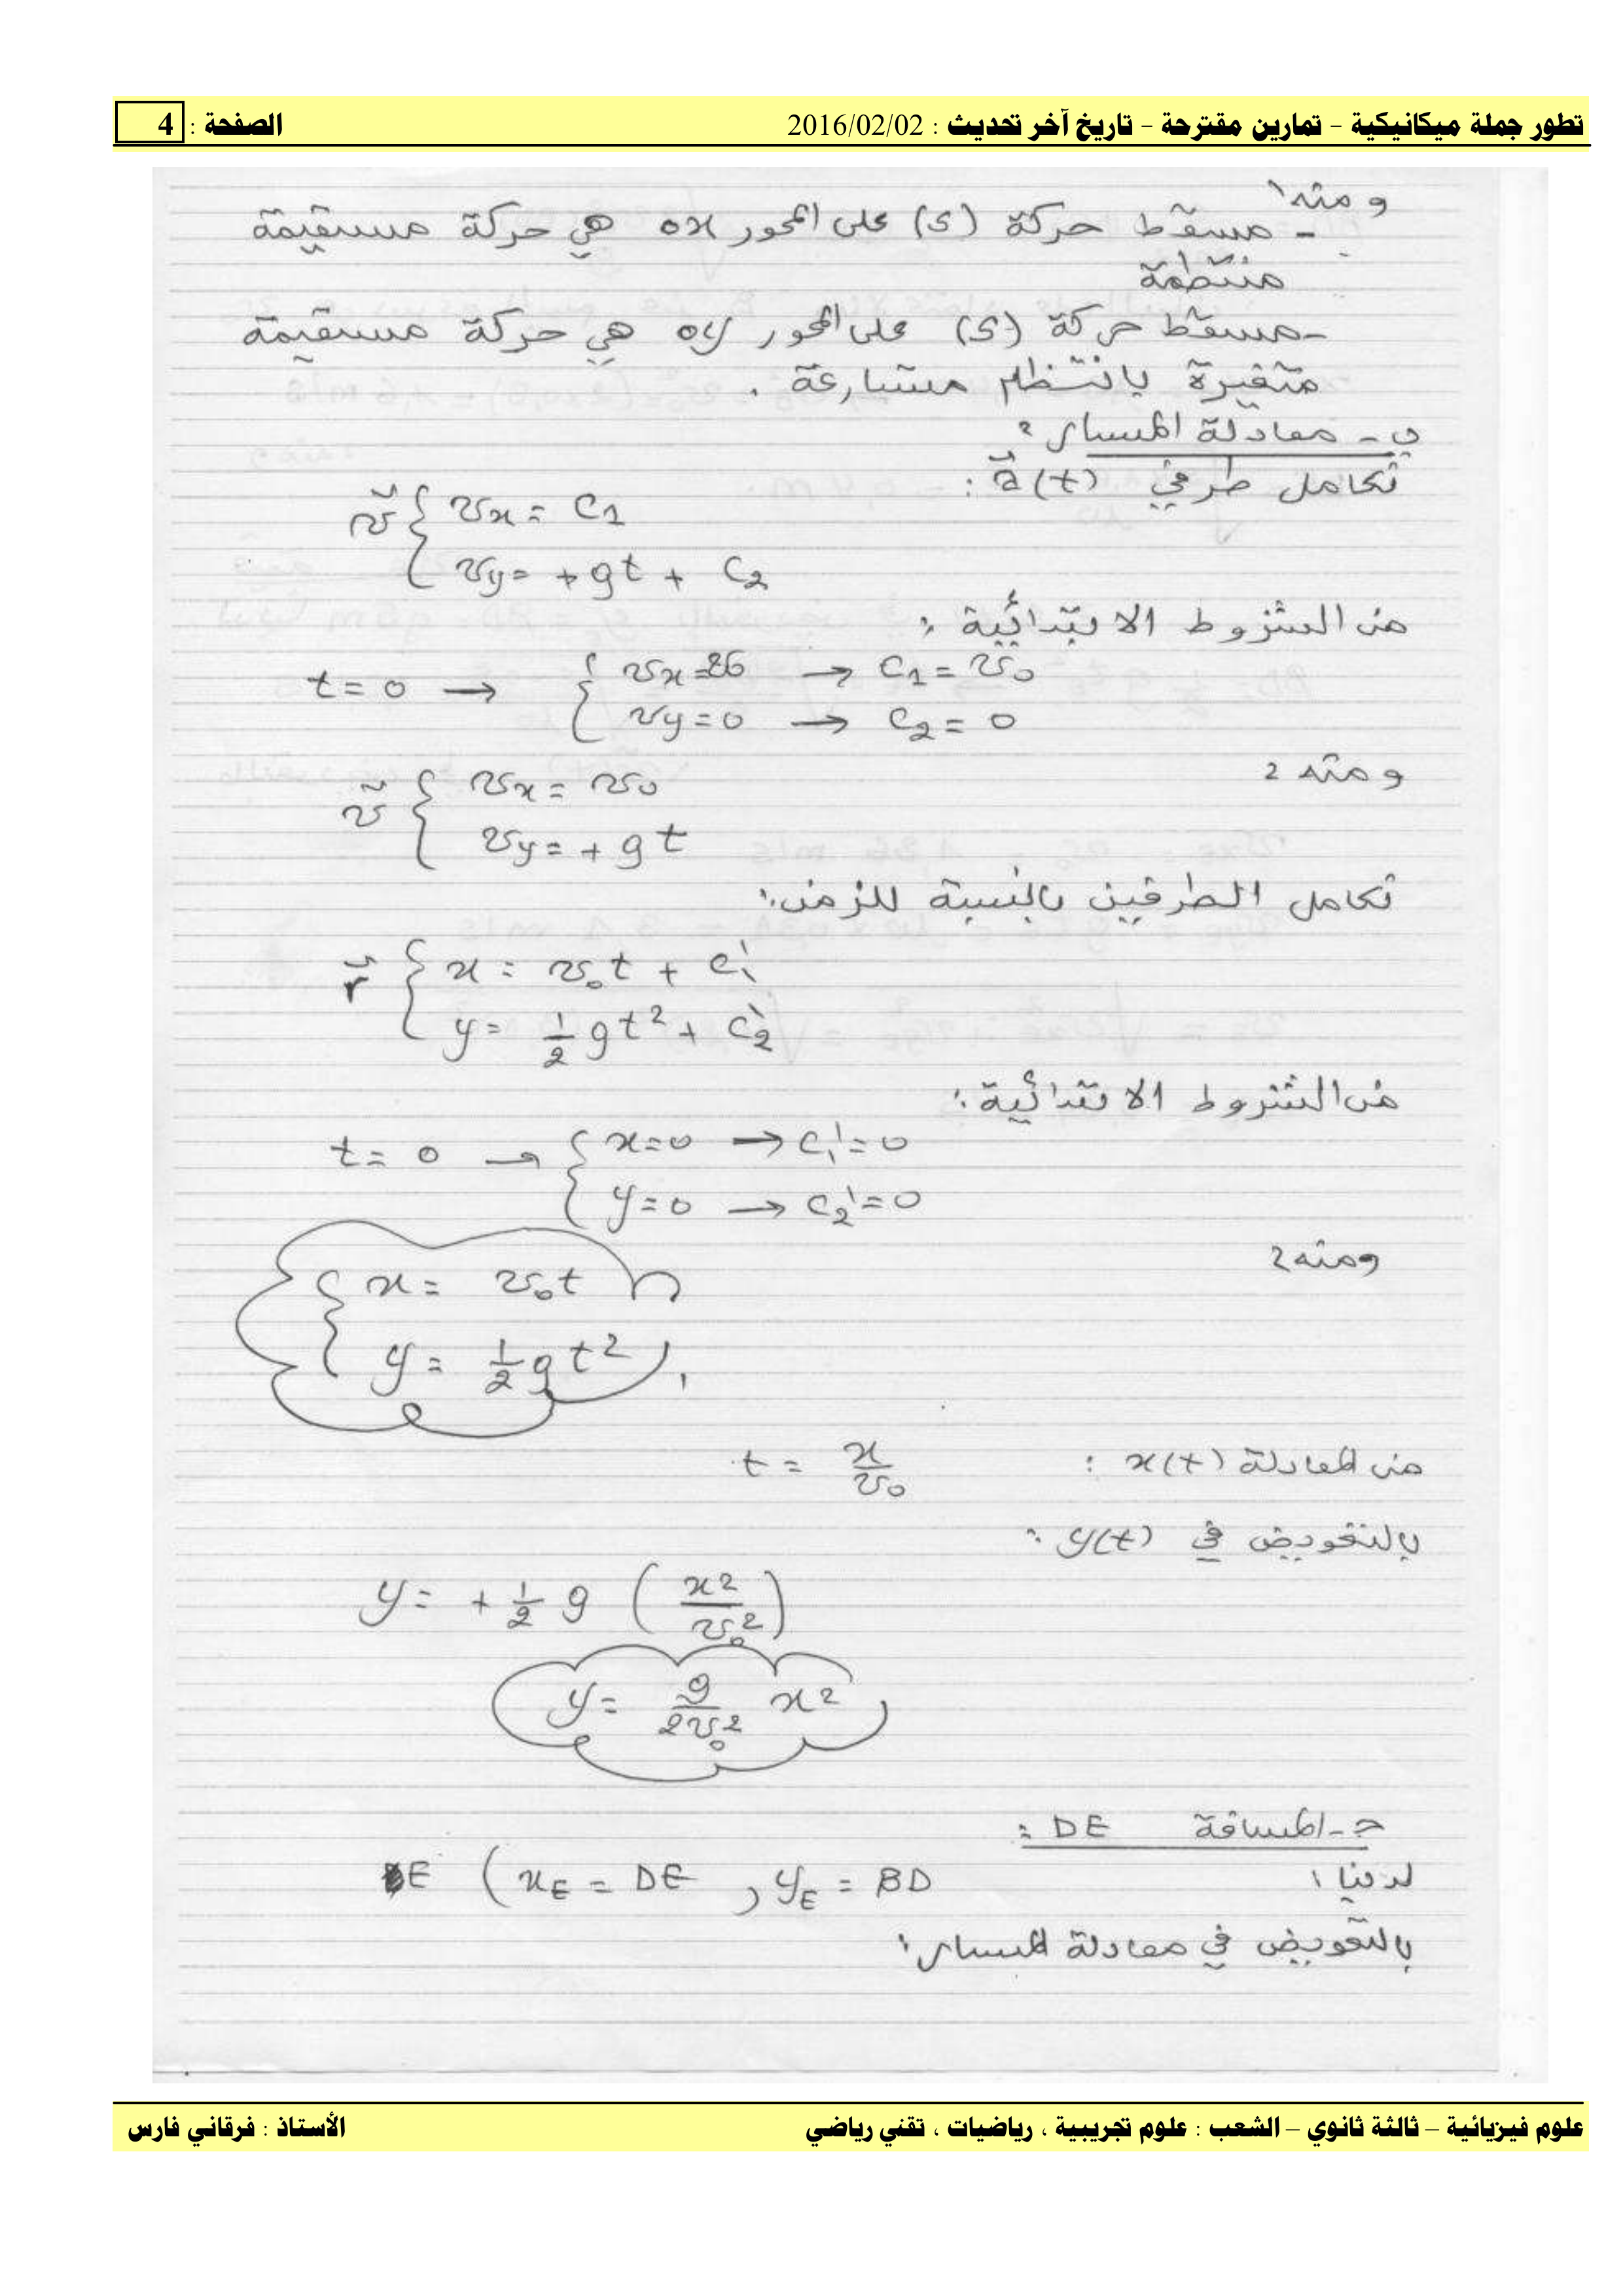 تطور جملة ميكانيكية – تمارين مقترحة – تاريخ آخر تحديث : 2016/02/02 الصفحة : 4
ومنه :
- مسقط حركة (S) على المحور ox هي حركة مستقيمة
منتظمة
- مسقط حركة (S) على المحور oy هي حركة مستقيمة
متغيرة بانتظام متسارعة .
ب - معادلة المسار :
نكامل طرفي a(t) :
v { vx = C1
vy = + gt + C2
من الشروط الابتدائية :
t = 0 → { vx = v0 → C1 = v0
vy = 0 → C2 = 0
ومنه :
v { vx = v0
vy = + gt
نكامل الطرفين بالنسبة للزمن :
r { x = v0 t + C1'
y = 1/2 gt² + C2'
من الشروط الابتدائية :
t = 0 → { x = 0 → C1' = 0
y = 0 → C2' = 0
ومنه :
{ x = v0 t
y = 1/2 gt²
من المعادلة x(t) : t = x/v0
بالتعويض في y(t) :
y = + 1/2 g (x²/v0²)
y = g/2v0² x²
جـ - المسافة DE :
لدينا : E (xE = DE , yE = BD
بالتعويض في معادلة المسار :
علوم فيزيائية – ثالثة ثانوي – الشعب : علوم تجريبية ، رياضيات ، تقني رياضي الأستاذ : فرقاني فارس